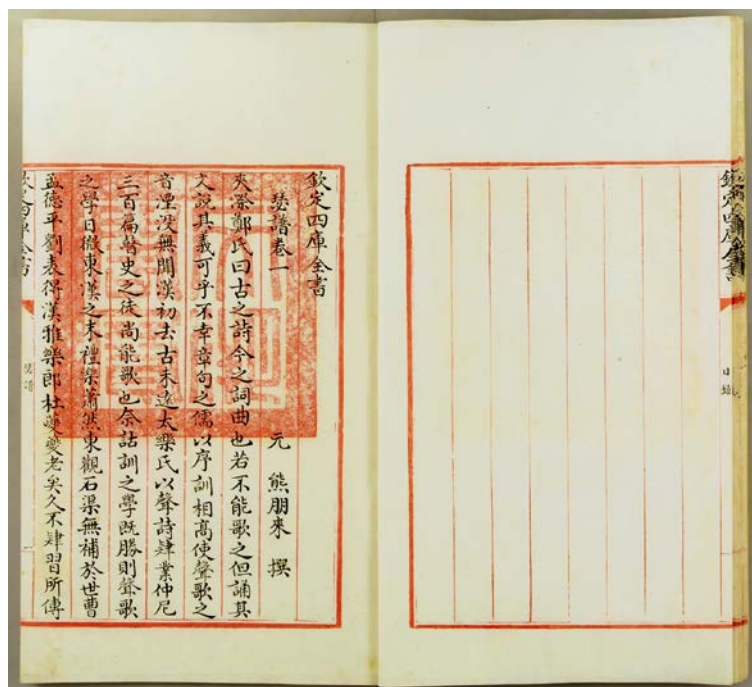 欽定四庫全書
目錄
欽定四庫全書
瑟譜卷一
元 熊朋來 撰
夾漈鄭氏曰古之詩今之詞曲也若不能歌之但誦其
文說其義可乎不幸章句之儒以序訓相高使聲歌之
音湮没無聞漢初去古未逺太樂氏以聲詩肄業仲尼
三百篇瞽史之徒尚能歌也奈詁訓之學既勝則聲歌
之學日微東漢之末禮樂蕭然東觀石渠無補於世曹
孟德平劉表得漢雅樂郎杜夔夔老矣久不肄習所傳
欽定四庫全書
瑟譜